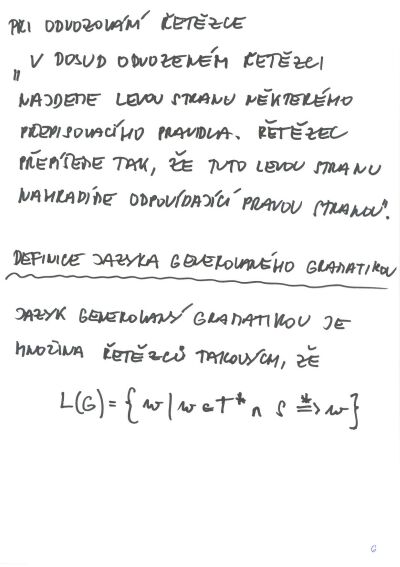 PŘI ODVOZOVÁNÍ ŘETĚZCE
„ V DOSUD ODVOZENÉM ŘETĚZCI
NAJDEME LEVOU STRANU NĚKTERÉHO
PŘEPISOVACÍHO PRAVIDLA. ŘETĚZEC
PŘEPÍŠEME TAK, ŽE TUTO LEVOU STRANU
NAHRADÍME ODPOVÍDAJÍCÍ PRAVOU STRANOU".
DEFINICE JAZYKA GENEROVANÉHO GRAMATIKOU
JAZYK GENEROVANÝ GRAMATIKOU JE
MNOŽINA ŘETĚZCŮ TAKOVÝCH, ŽE
L(G) = { w | w ∈ T* ∧ S ⇒* w }
6